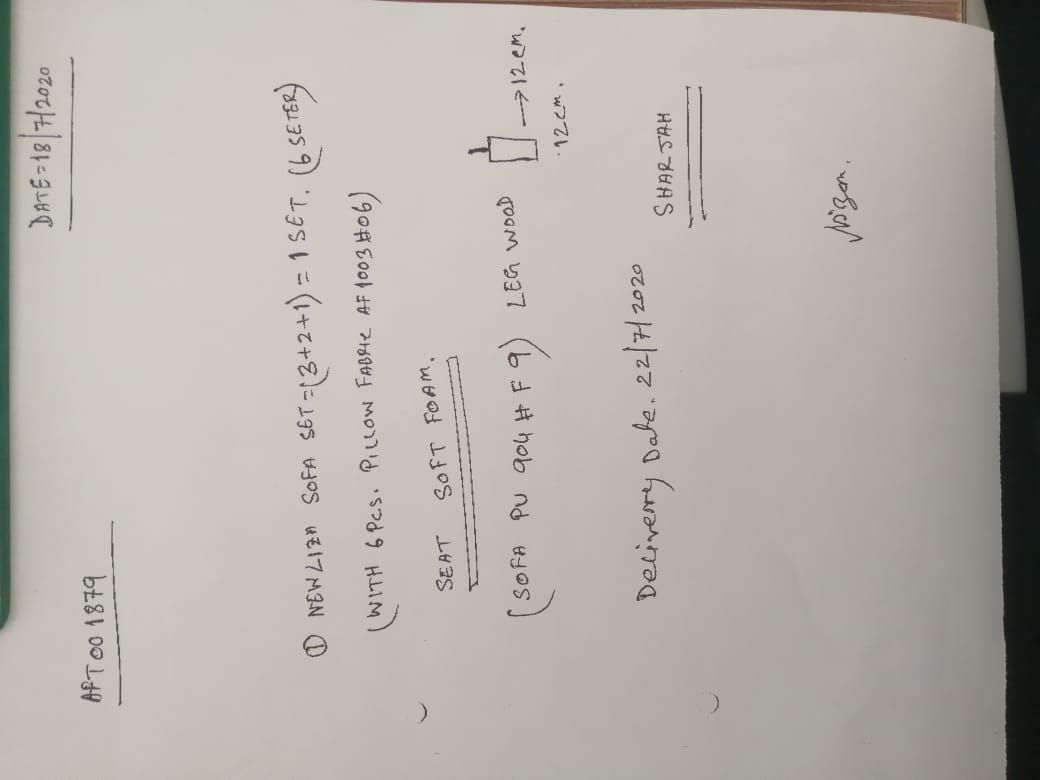 DATE=18/7/2020
AFT001879
① NEW LIZA SOFA SET=(3+2+1)=1 SET. (6 SETER)
(WITH 6 Pcs. PILLOW FABRIC AF 1003#06)
SEAT SOFT FOAM.
(SOFA PU 904 # F 9) LEG WOOD → 12 cm.
12 cm.
Delivery Date. 22/7/2020
SHARJAH
Nizam.